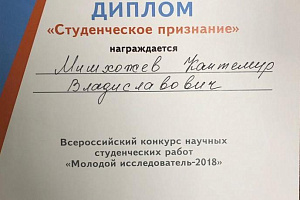 ДИПЛОМ
«Студенческое признание»
награждается
Мишхожев Кантемир
Владиславович
Всероссийский конкурс научных
студенческих работ
«Молодой исследователь-2018»